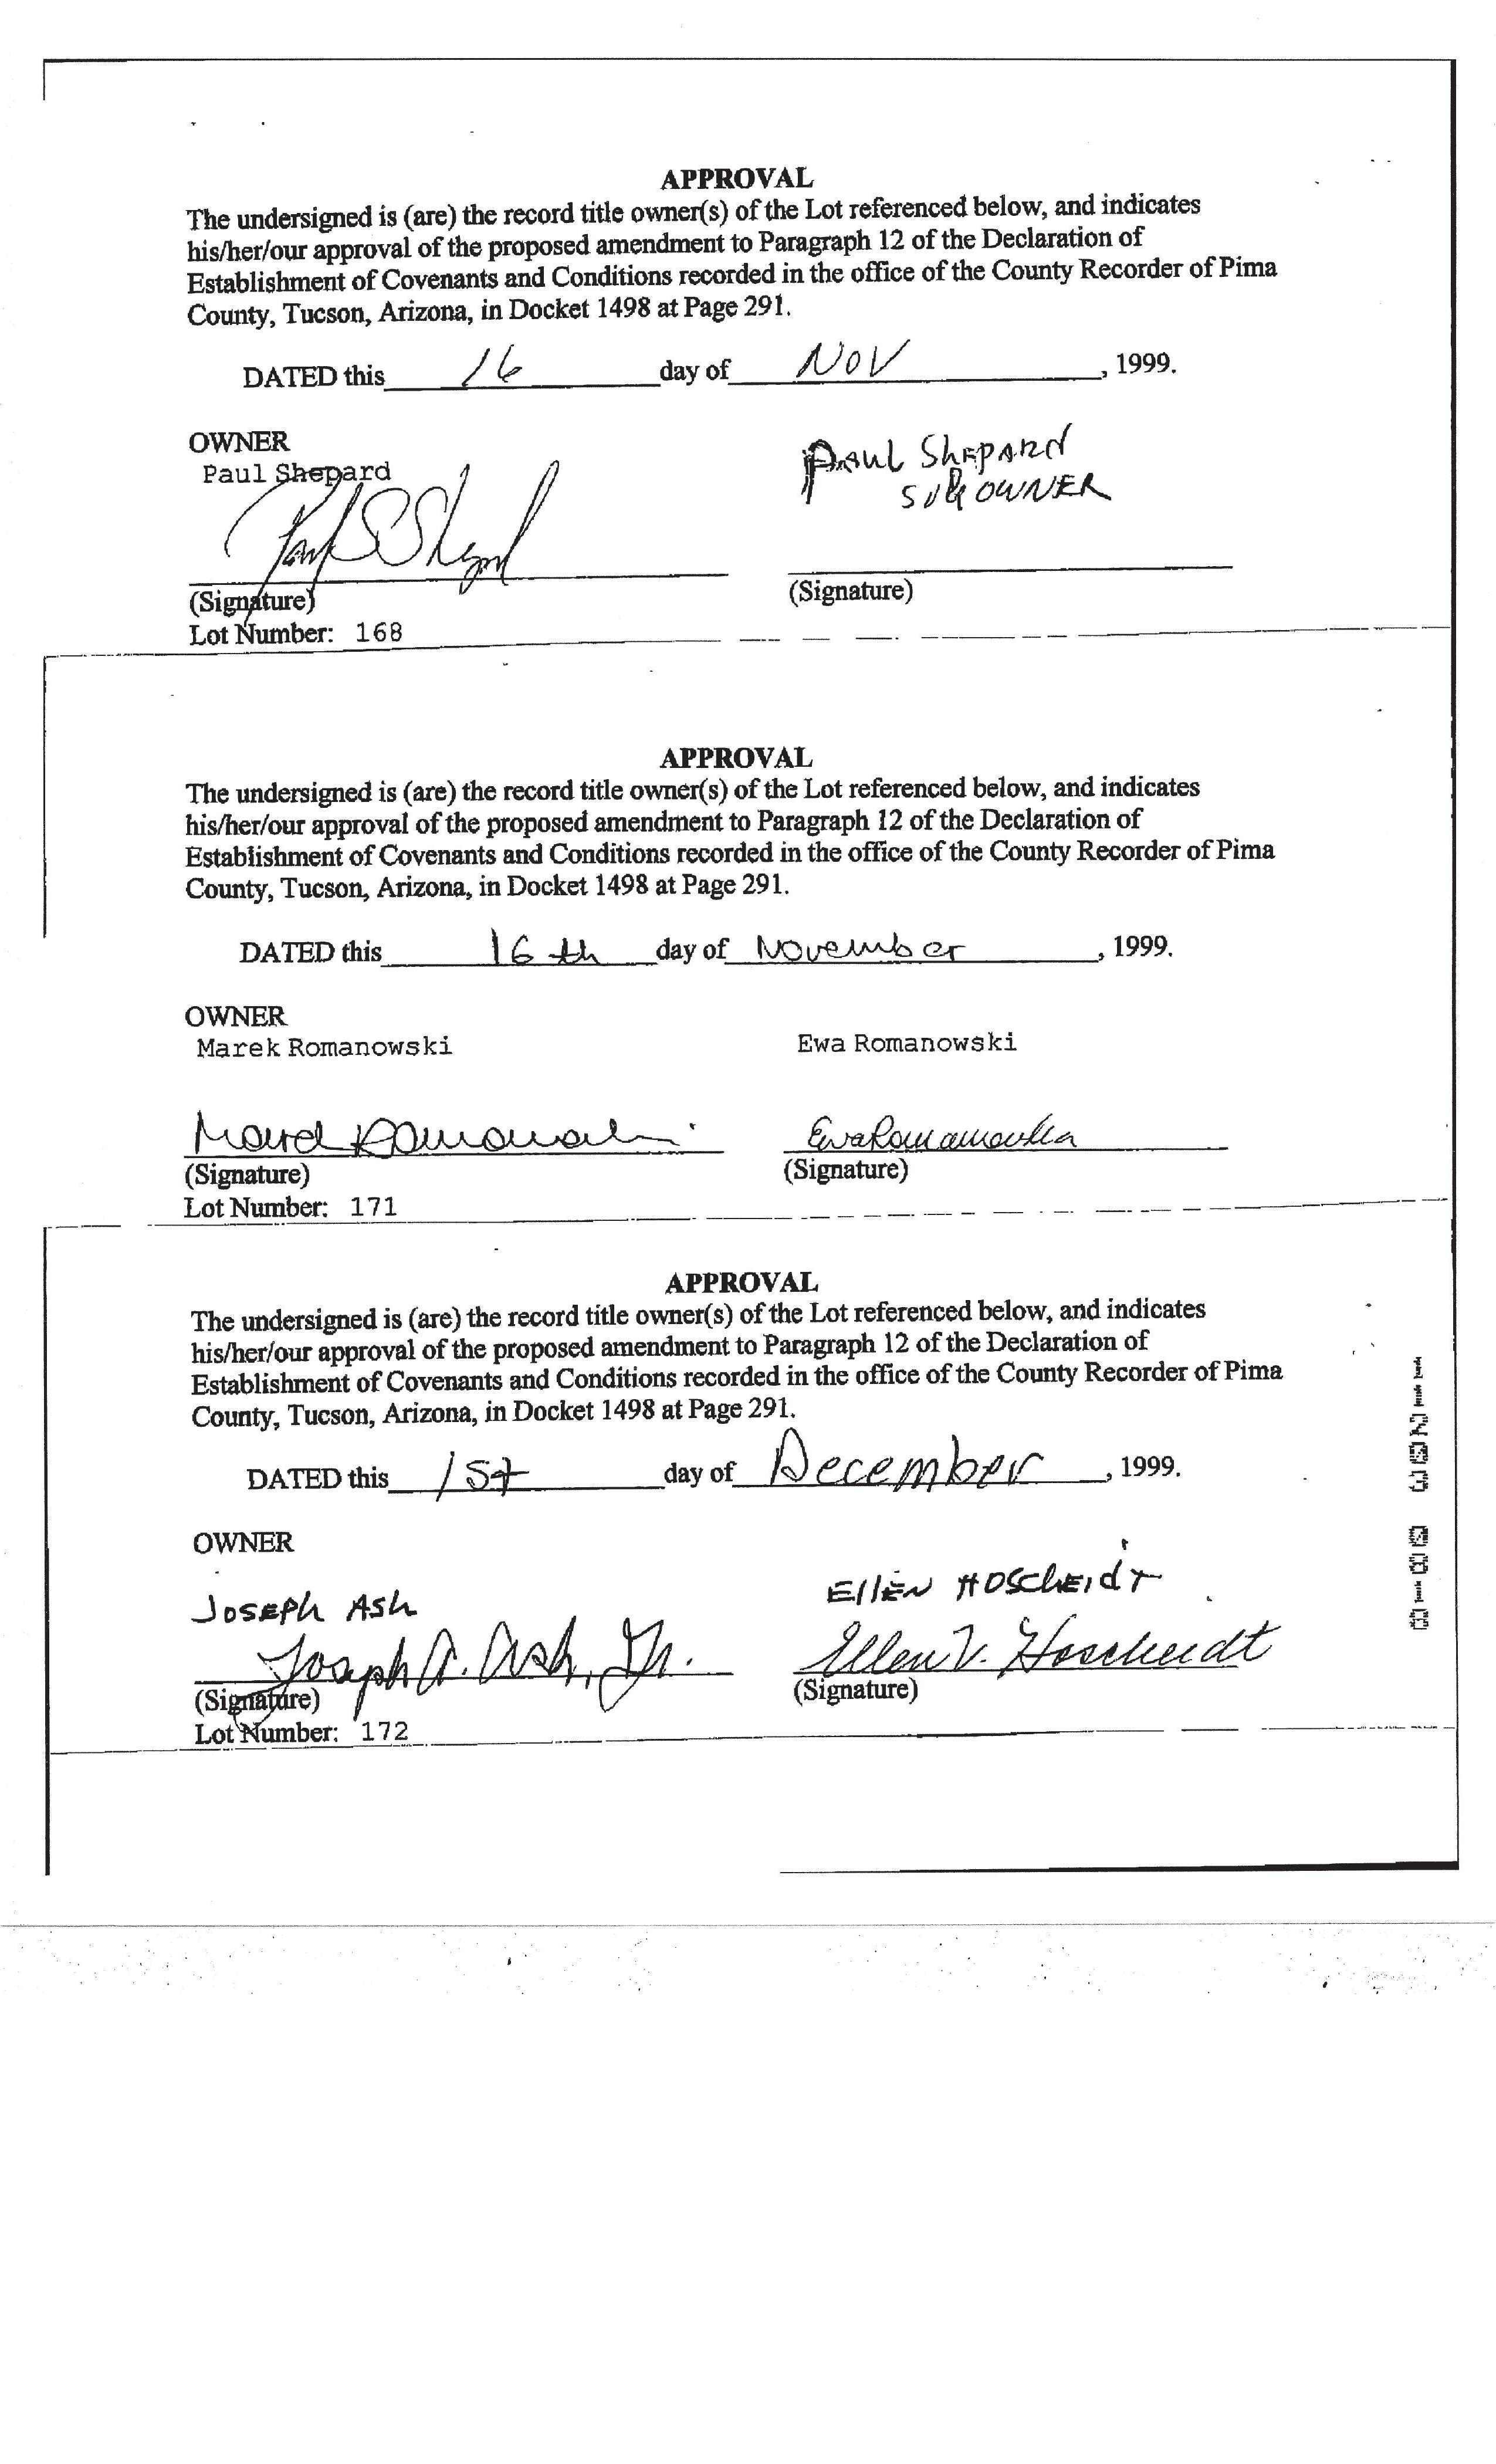 APPROVAL
The undersigned is (are) the record title owner(s) of the Lot referenced below, and indicates
his/her/our approval of the proposed amendment to Paragraph 12 of the Declaration of
Establishment of Covenants and Conditions recorded in the office of the County Recorder of Pima
County, Tucson, Arizona, in Docket 1498 at Page 291.
DATED this 16 day of NOV, 1999.
OWNER
Paul Shepard
PAUL ShEPARD
OWNER
Paul S Shepard
(Signature) (Signature)
Lot Number: 168
APPROVAL
The undersigned is (are) the record title owner(s) of the Lot referenced below, and indicates
his/her/our approval of the proposed amendment to Paragraph 12 of the Declaration of
Establishment of Covenants and Conditions recorded in the office of the County Recorder of Pima
County, Tucson, Arizona, in Docket 1498 at Page 291.
DATED this 16th day of November, 1999.
OWNER
Marek Romanowski Ewa Romanowski
Marek Romanowski Ewa Romanowska
(Signature) (Signature)
Lot Number: 171
APPROVAL
The undersigned is (are) the record title owner(s) of the Lot referenced below, and indicates
his/her/our approval of the proposed amendment to Paragraph 12 of the Declaration of
Establishment of Covenants and Conditions recorded in the office of the County Recorder of Pima
County, Tucson, Arizona, in Docket 1498 at Page 291.
DATED this 1st day of December, 1999.
OWNER
JOSEPh ASh EllEN HOSchEIdT
Joseph A. Ash, Jr. Ellen V. Hoscheidt
(Signature) (Signature)
Lot Number: 172